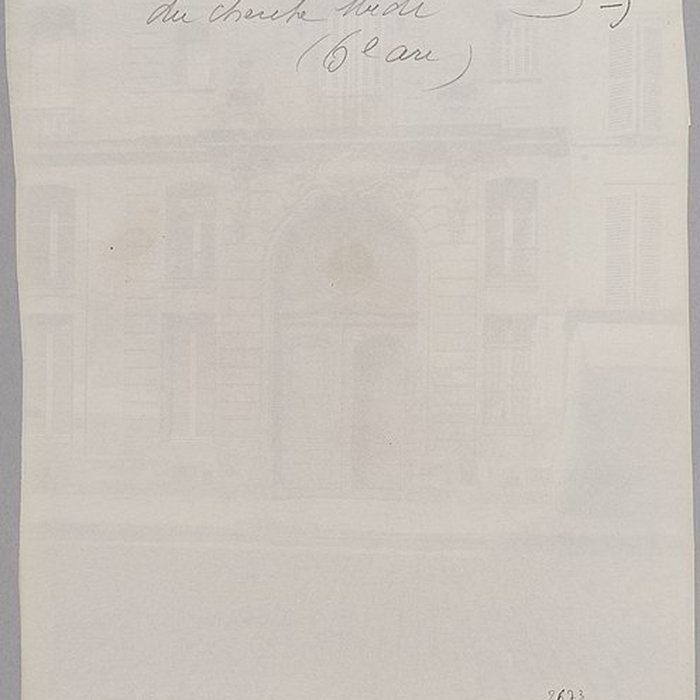 du cherche Midi
(6e arr)
2673